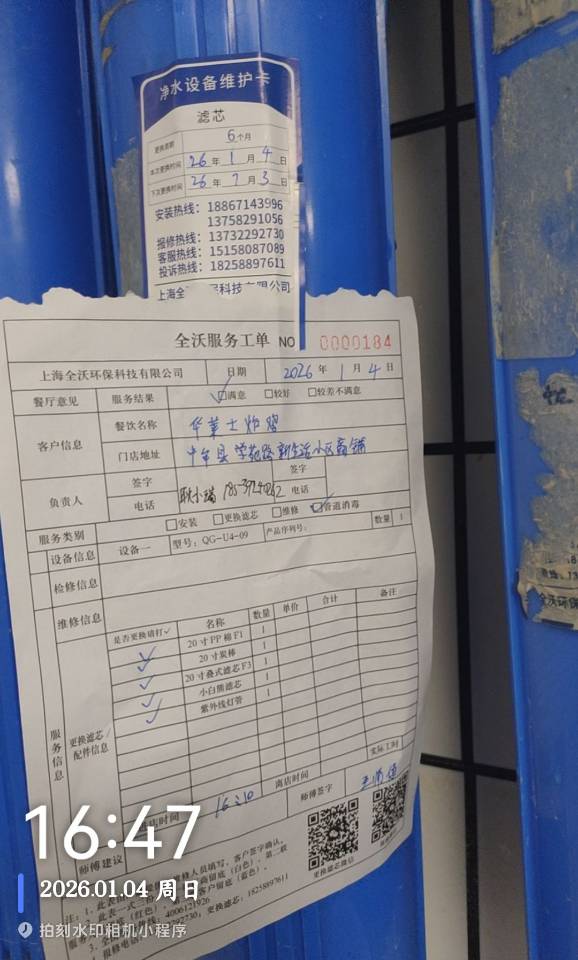 净水设备维护卡
滤芯
更换周期 6个月
本次更换时间 26年1月4日
下次更换时间 26年7月3日
安装热线：18867143996
13758291056
报修热线：13732292730
客服热线：15158087089
投诉热线：18258897611
上海全沃 保科技有限公司
全沃服务工单 NO 0000184
上海全沃环保科技有限公司 日期 2026年1月4日
餐厅意见 服务结果 ☑满意 □较好 □较差不满意
客户信息 餐饮名称 华莱士炸鸡
门店地址 中牟县学苑路新生活小区商铺
负责人 签字 签字
电话 电话
服务类别 □安装 □更换滤芯 □维修 ☑管道消毒
设备信息 设备一 型号：QG-U4-09 产品序列号： 数量 1
检修信息
维修信息
服务信息 更换滤芯/配件信息 是否更换请打✓ 名称 数量 单价 合计 备注
✓ 20寸PP棉F1 1
✓ 20寸炭棒 1
✓ 20寸叠式滤芯F3 1
✓ 小白熊滤芯 1
紫外线灯管 1
店时间 16:10 离店时间 实际工时
师傅签字
师傅建议
更换滤芯微信
16:47
2026.01.04 周日
拍刻水印相机小程序